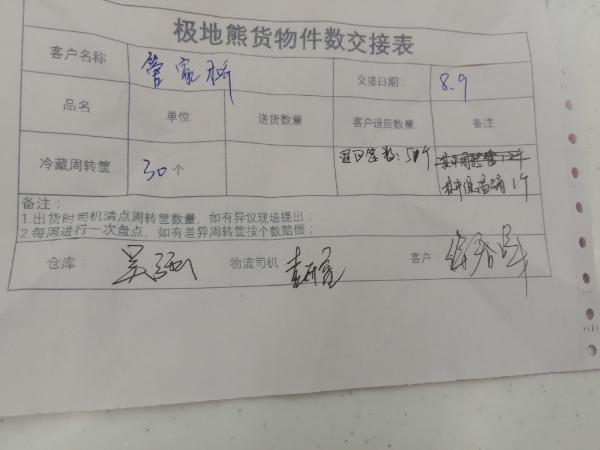 极地熊货物件数交接表
客户名称 管家桥 交接日期: 8.9
品名 单位 送货数量 客户退回数量 备注
冷藏周转筐 30个 退回筐数:50个
其中保温箱1个
备注:
1.出货时司机清点周转筐数量,如有异议现场提出;
2.每周进行一次盘点,如有差异周转筐按个数赔偿;
仓库: 物流司机: 客户: